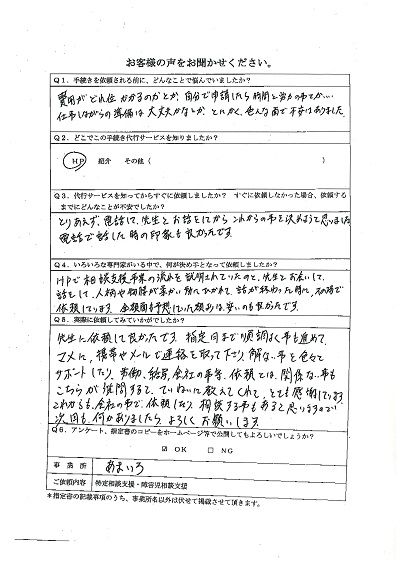 お客様の声をお聞かせください。
Q1．手続きを依頼される前に、どんなことで悩んでいましたか？
費用がどれ位かかるのかとか、自分で申請したら時間と労力の事でが…
仕事しながらの準備は大丈夫かなとか、とにかく、色んな面で不安はありました。
Q2．どこでこの手続き代行サービスを知りましたか？
HP 紹介 その他（ ）
Q3．代行サービスを知ってからすぐに依頼しましたか？ すぐに依頼しなかった場合、依頼する
までにどんなことが不安でしたか？
とりあえず、電話して、先生とお話をしてからこれからの事を決めようと思いました
電話で話した時の印象も良かったです。
Q4．いろいろな専門家がいる中で、何が決め手となって依頼しましたか？
HPで相談支援事業の流れを説明されていたのと、先生とお会いして、
話をして、人柄や物腰が柔かい所にひかれて、話が終わった時に、その場で
依頼しています。金額面も予想していた額よりは、安いのも良かったです。
Q5．実際に依頼してみていかがでしたか？
先生に依頼して良かったです。指定日まで順調に事も進めて、
マメに、携帯やメールで連絡を取って下さり、解ない事を色々と
サポートしたり、労働、給与、会社の事等、依頼とは、関係ない事も
こちらが質問すると、ていねいに教えてくれて、とても感謝しています
これからも、会社の事で、依頼したり、相談する事もあると思いますので
次回も、何かありましたら、よろしくお願いします
Q6．アンケート、指定書のコピーをホームページ等で公開してもよろしいでしょうか？
☑ OK □ NG
事業所 あまいろ
ご依頼内容 特定相談支援・障害児相談支援
＊指定書の記載事項のうち、事業所名以外は伏せて掲載させて頂きます。